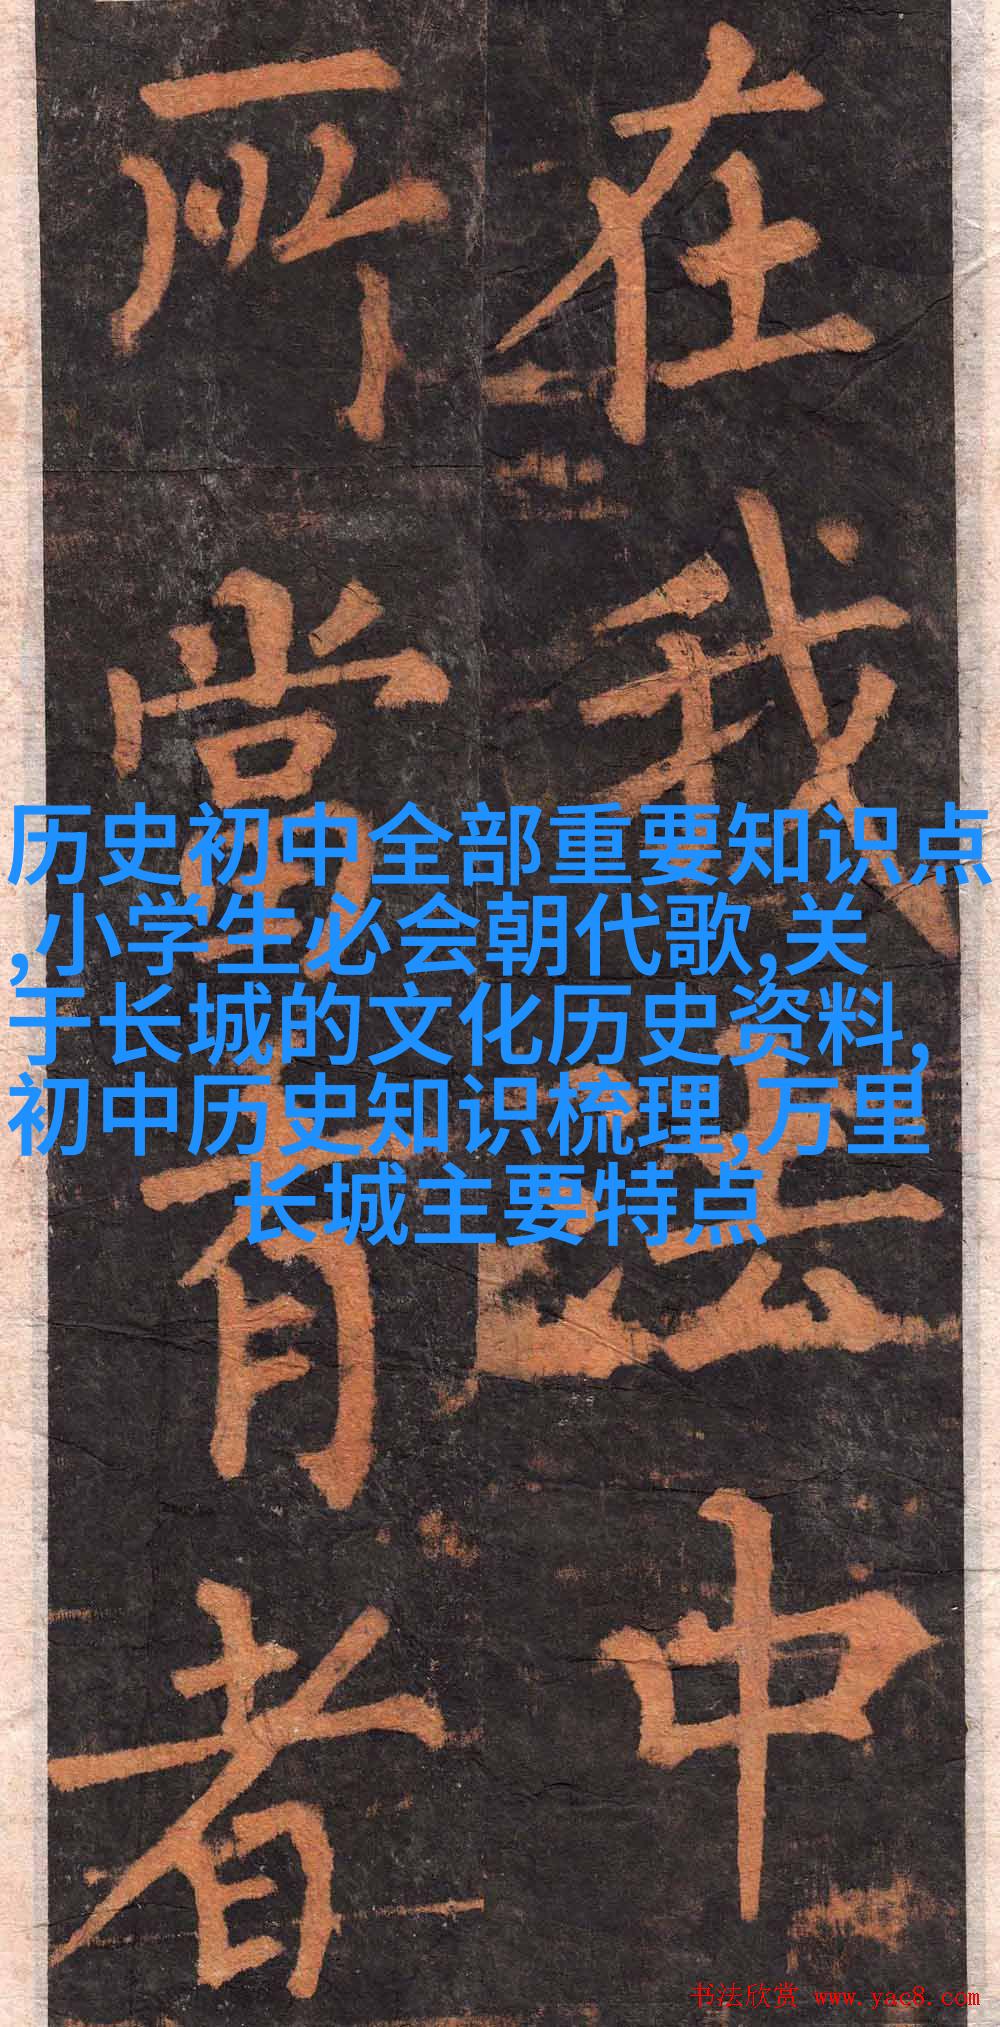 在我法中
所當有者
历史初中全部重要知识点
,小学生必会朝代歌,关
于长城的文化历史资料,
初中历史知识梳理,万里
长城主要特点
书法欣赏 www.yac8.com